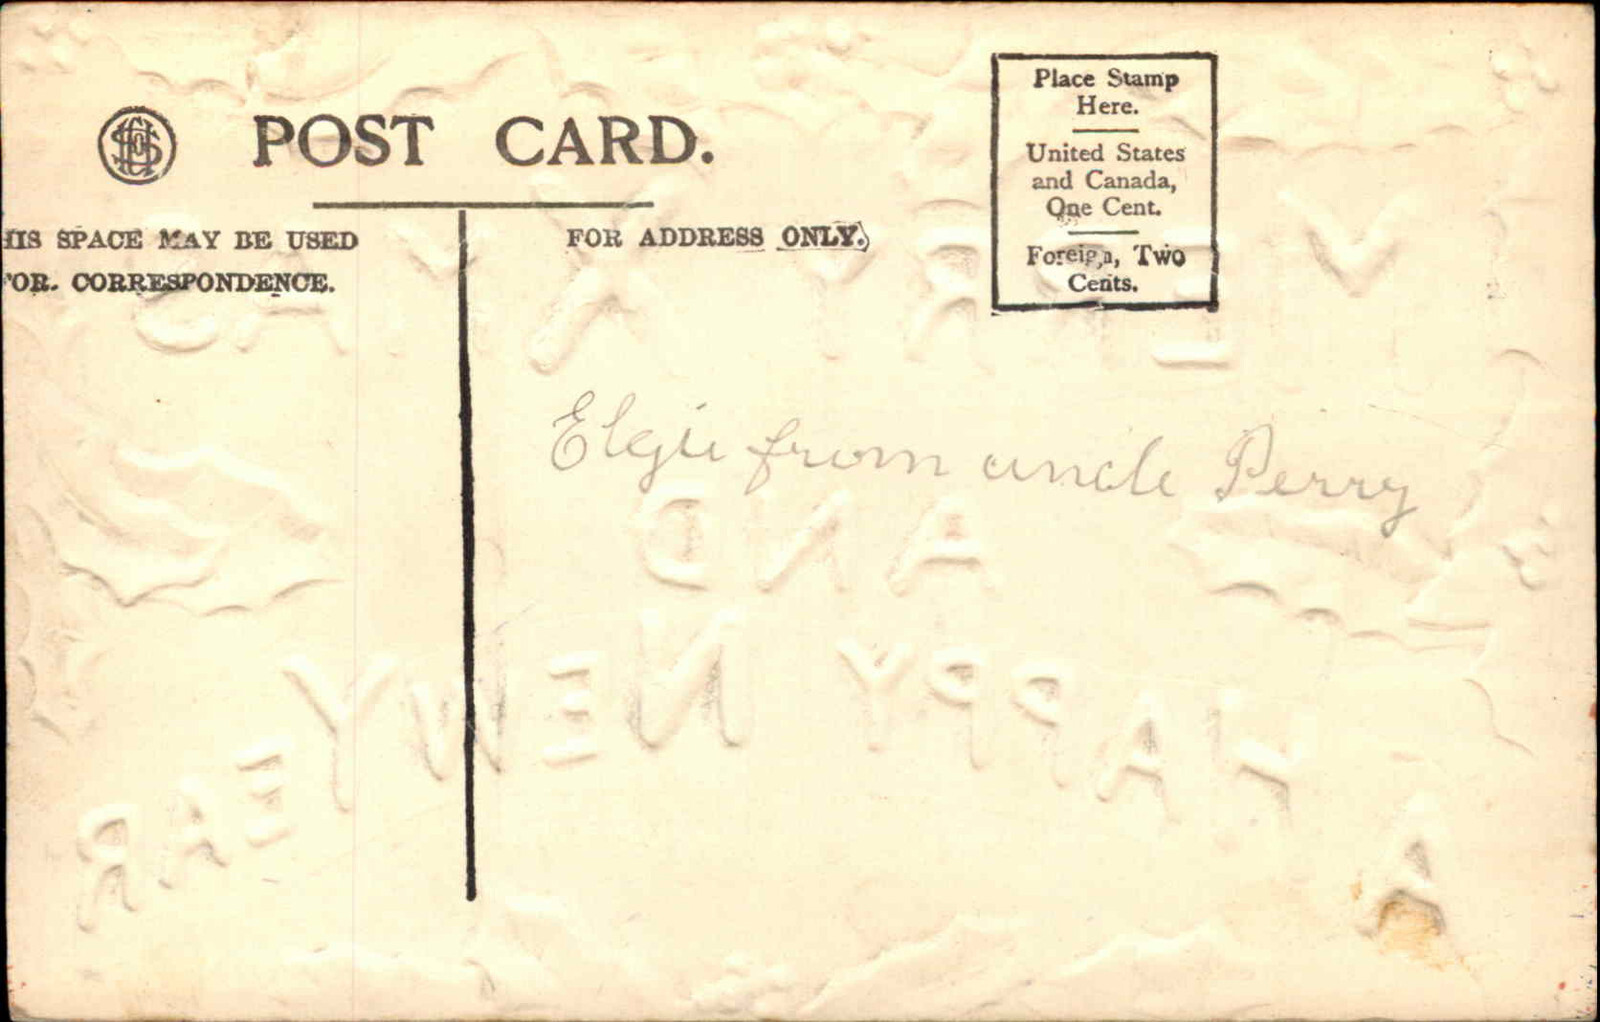 POST CARD.
Place Stamp
Here.
United States
and Canada,
One Cent.
Foreign, Two
Cents.
HIS SPACE MAY BE USED
FOR CORRESPONDENCE.
FOR ADDRESS ONLY.
Elgie from uncle Perry
AND
A HAPPY NEW YEAR